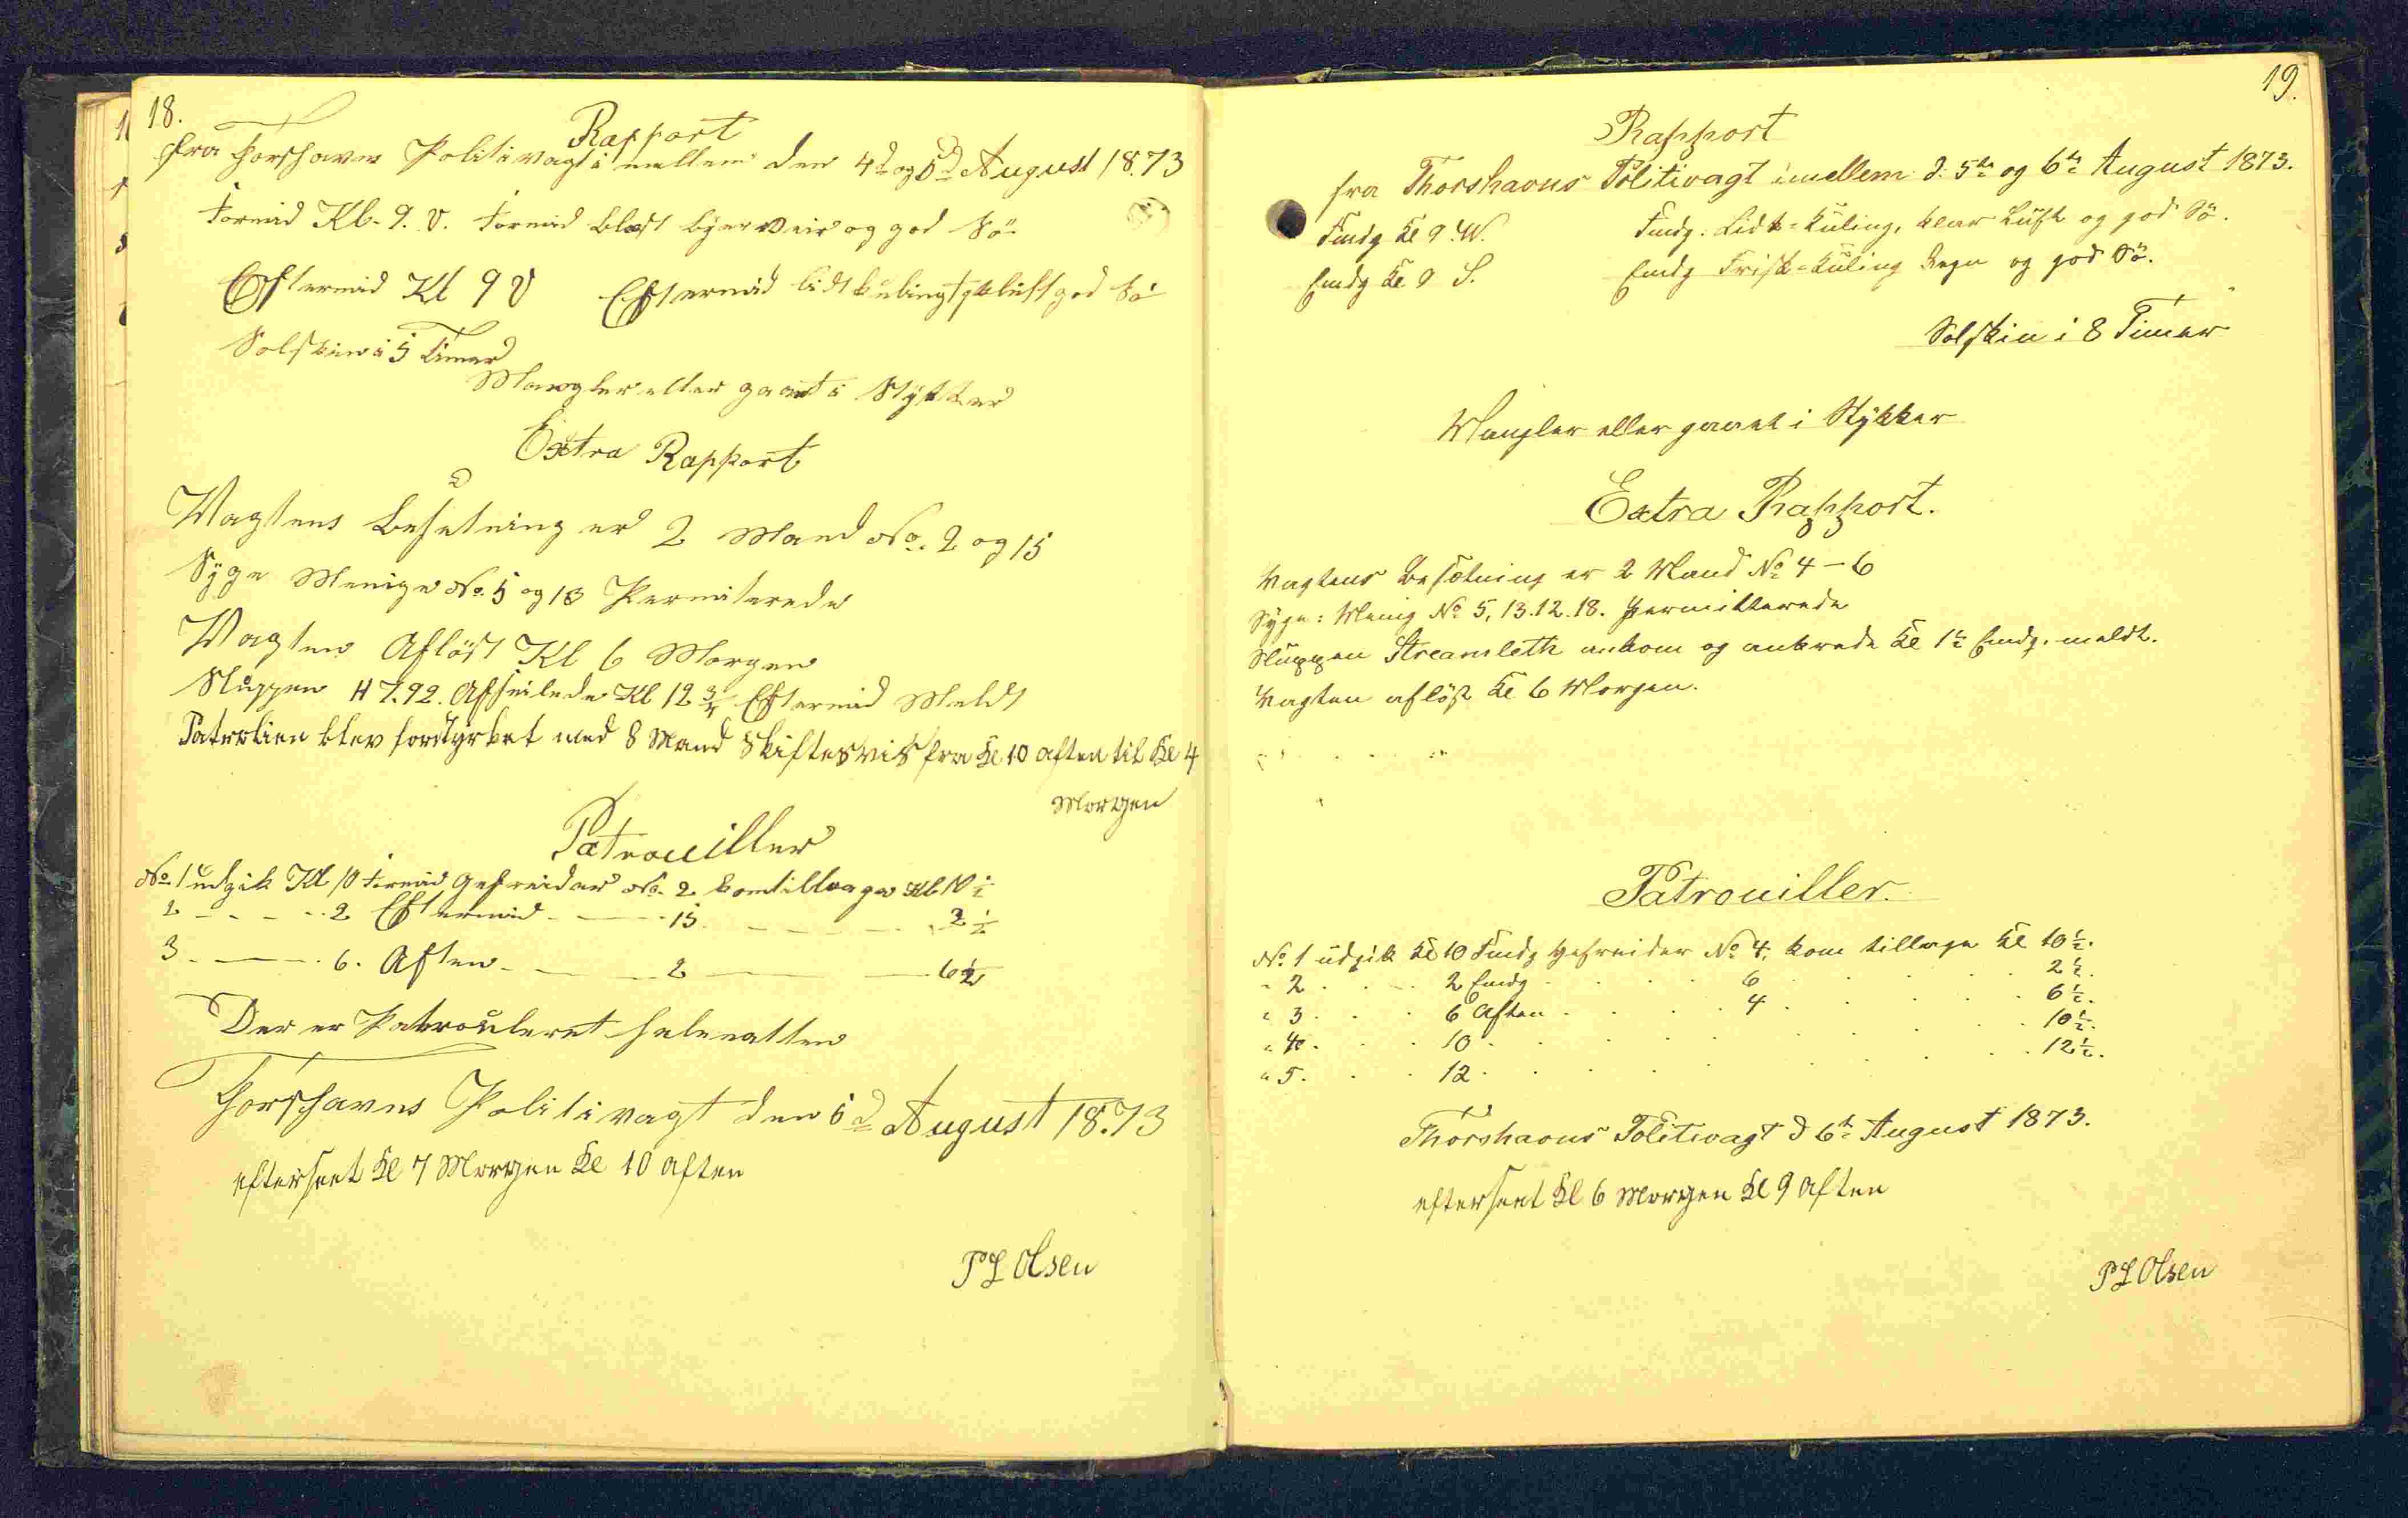 18.
Rapport
fra Thorshavns Politivagt imellem den 4d og 5d August 1873
Formid Kl. 9. V. Formid blæst byerveir og god Sö
Eftermid Kl 9 V Eftermid lidt kuling tykluft god Sö
Solskin i 5 Timer
Mangler eller gaaet i Stykker
Extra Rapport
Vagtens Besetning er 2 Mand No. 2 og 15
Syge Menige No. 5 og 13 Permiterede
Vagten Aflöst Kl 6 Morgen
Sluppen H 7.92. Afseilede Kl 12 3/4 Eftermid Meldt
Patrolien blev forstyrket med 8 Mand Skiftesvis fra Kl 10 aften til Kl 4
Morgen
Patrouiller
No 1 udgik Kl 10 Formid Gefreider No. 2 kom tilbage Kl 10 1/2
2 - - - - 2 Eftermid - - - 15 - - - - 2 1/2
3 - - - 6. Aften - - - 2 - - - 6 1/2
Der er Patrouleret hele natten
Thorshavns Politivagt den 5d August 1873
efterseet Kl 7 Morgen Kl 10 aften
P L Olsen
19.
Rapport
fra Thorshavns Politivagt imellem d. 5te og 6te August 1873.
Fmdg Kl 9 W. Fmdg. Lidt-Kuling, klar Luft og god Sö.
Emdg Kl 9 S. Emdg Frisk-Kuling Regn og god Sö.
Solskin i 8 Timer
Mangler eller gaaet i Stykker
Extra Rapport.
Vagtens Besætning er 2 Mand No 4-6
Syge: Menig No 5, 13. 12. 18. Permitterede
Sluppen Streamleth ankom og ankrede Kl 1 1/2 Emdg. meldt.
Vagten aflöst Kl 6 Morgen.
Patrouiller.
No. 1 udgik Kl 10 Fmdg Gefreider No 4, kom tilbage Kl 10 1/2.
" 2 . . . 2 Emdg . . . 6 . . . . 2 1/2.
" 3 . . . 6 Aften . . . 4 . . . . 6 1/2.
" 4 . . . 10 . . . . . . . . 10 1/2.
" 5 . . . 12 . . . . . . . . 12 1/2.
Thorshavns Politivagt d 6te August 1873.
efterseet Kl 6 Morgen Kl 9 Aften
P L Olsen